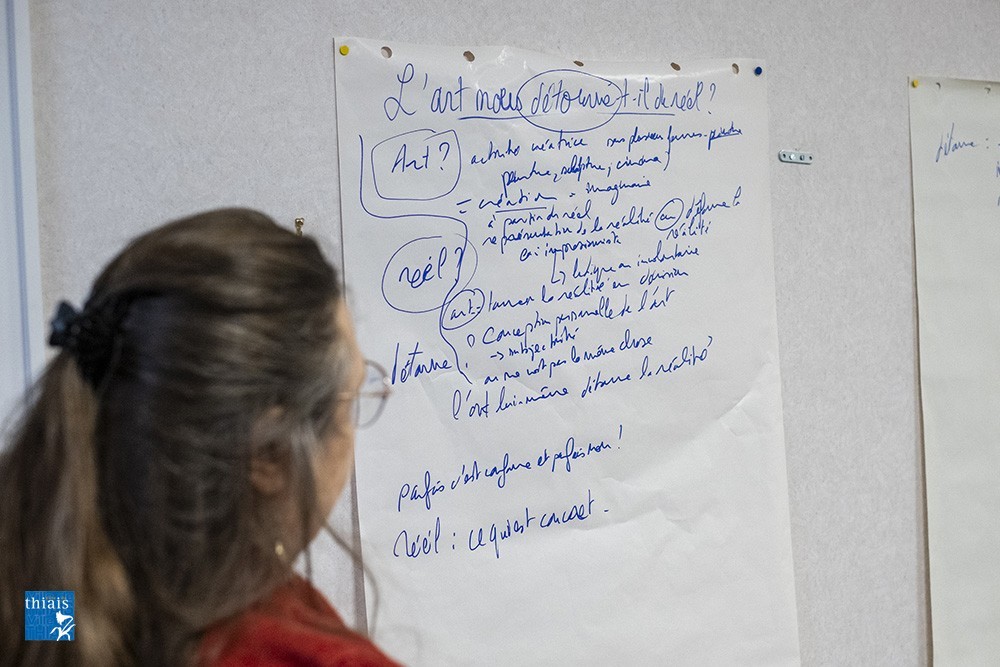 L'art nous détourne t-il du réel ?
Art ? activité créatrice sous plusieurs formes - peindre
peinture, sculpture, cinéma
= création = imaginaire
à partir du réel
représentation de la réalité ou détourne la
réalité
ex: impressionniste
↳ ludique ou involontaire
réel ?
art = tourner la réalité en dérision
Conception personnelle de l'art
→ subjectivité
détourne ?
on ne voit pas la même chose
l'art lui-même détourne la réalité ?
parfois c'est conforme et parfois non !
réel : ce qui est concret -
détourne :
thiais